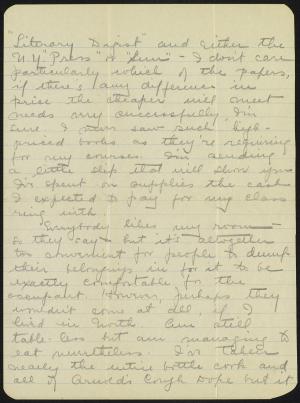 "Literary Digest" and either the
N.Y. "Press" or "Sun" - I don't care
particularly which of the papers,
if there's any difference in
price the cheaper will meet
needs very successfully. I'm
sure I never saw such high-
priced books as they're requiring
for my courses. I'm sending
a little slip that will show you
I've spent on supplies the cash
I expected to pay for my class
ring with.
Everybody likes my room -
so they say - but it's altogether
too convenient for people to dump
their belongings in for it to be
exactly comfortable for the
occupant. However, perhaps they
wouldn't come at all, if I
lived in North. Am still
table-less but am managing to
eat nevertheless. I've taken
nearly the entire bottle cork and
all of Arnold's Cough Dope but it